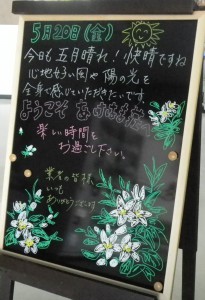 5月20日(金)
今日も五月晴れ!快晴ですね
心地好い風や陽の光を
全身で感じていただきたいです
ようこそ
楽しい時間を
お過ごし下さい。
業者の皆様
いつも
ありがとうございます